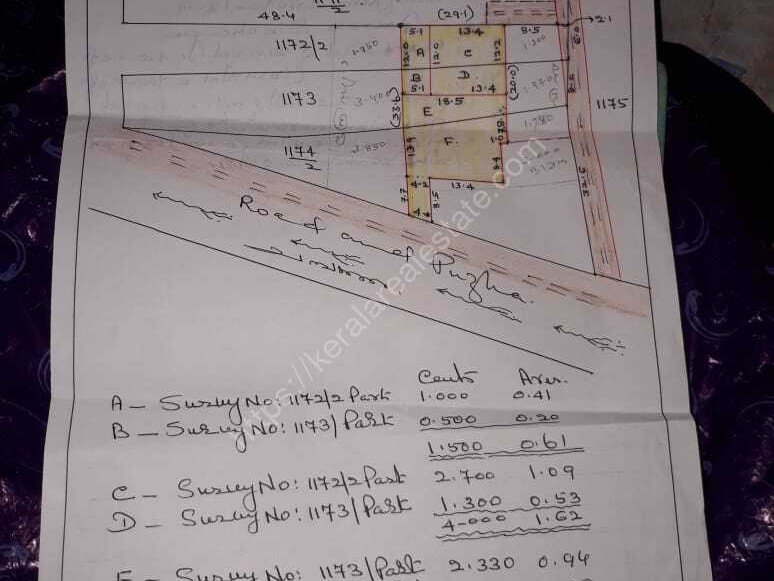 48.4
(29.1)
2.1
5.1
13.4
8.5
1172/2
12.0
A
12.0
C
12.2
B
D
1173
5.1
13.4
(20.0)
1175
18.5
(33.6)
E
1174
2
F
13.9
4.2
13.4
7.7
8.5
52.5
Road and Puzha.
https://keralarealestate.com
Cents Ares.
A - Survey No: 1172/2 Part 1.000 0.41
B - Survey No: 1173/Part 0.500 0.20
1.500 0.61
C - Survey No: 1172/2 Part 2.700 1.09
D - Survey No: 1173/Part 1.300 0.53
4-000 1.62
E - Survey No: 1173/Part 2.330 0.94